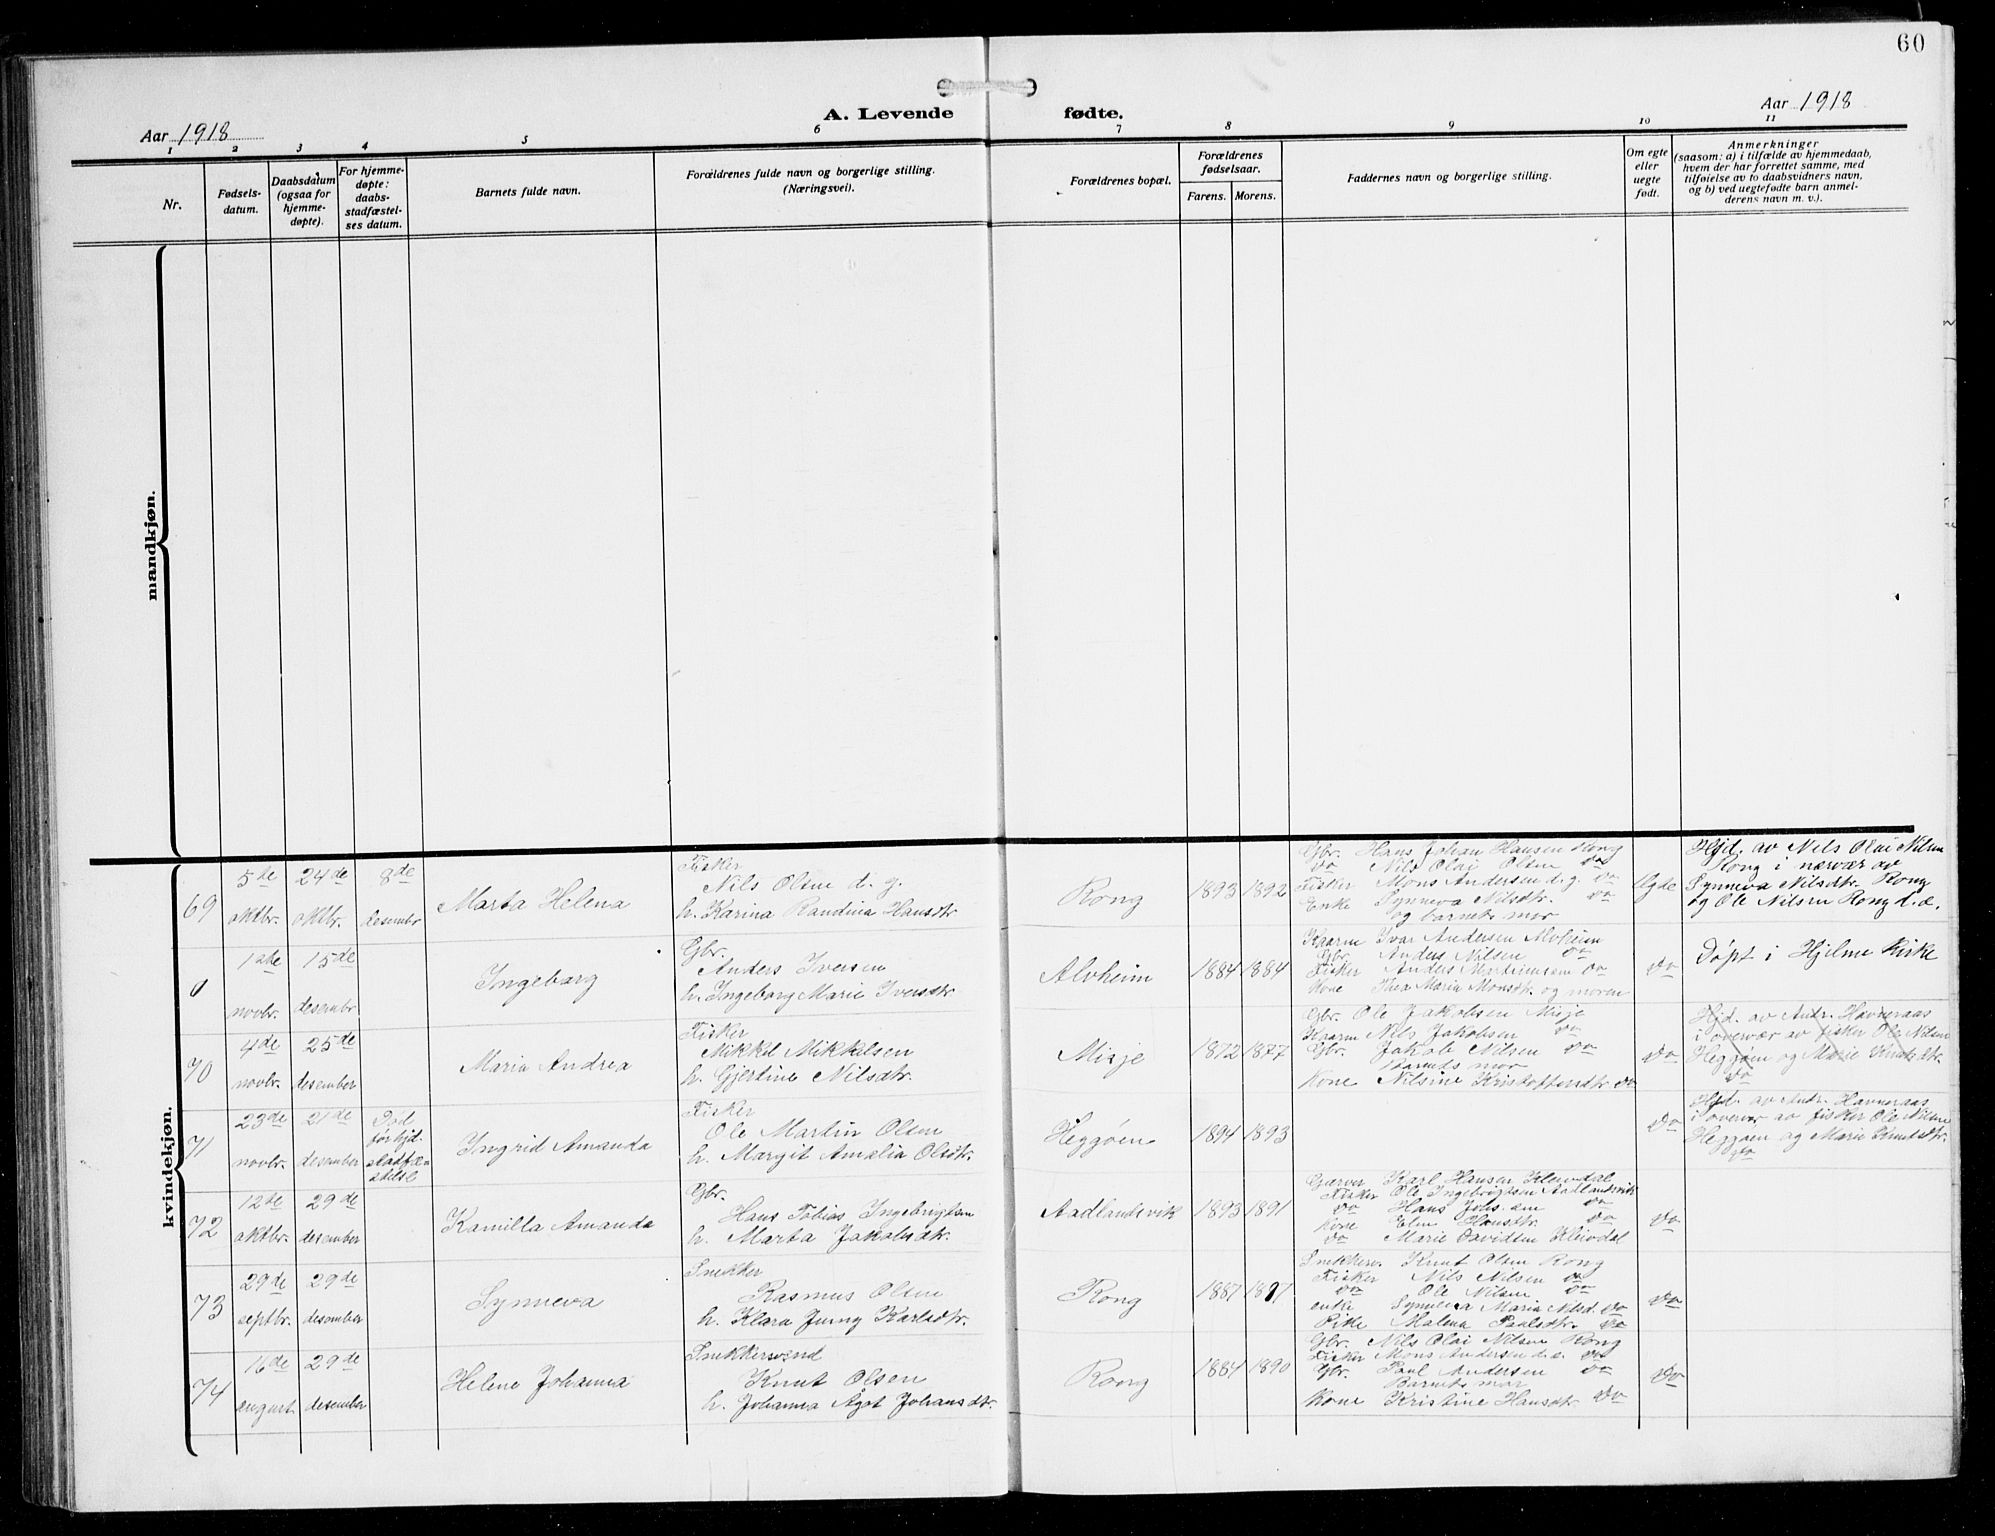 60
A. Levende fødte.
Aar 1918
Aar 1918
1 2 3 4 5 6 7 8 9 10 11
Nr.
Fødsels-
datum.
Daabsdatum
(ogsaa for
hjemme-
døpte).
For hjemme-
døpte:
daabs-
stadfæstel-
ses datum.
Barnets fulde navn.
Forældrenes fulde navn og borgerlige stilling.
(Næringsvei).
Forældrenes bopæl.
Forældrenes
fødselsaar.
Farens. Morens.
Faddernes navn og borgerlige stilling.
Om egte
eller
uegte
født.
Anmerkninger
(saasom: a) i tilfælde av hjemmedaab,
hvem der har forrettet samme, med
tilføielse av to daabsvidners navn,
og b) ved uegtefødte barn anmel-
derens navn m. v.).
mandkjøn.
kvindekjøn.
69
5de
oktbr.
24de
oktbr.
8de
desembr
Marta Helena
Fisker
Nils Olsen d. y.
h. Karina Randina Hansdtr
Rong
1893 1892
Gbr. Hans Johan Hansen Rong
do Nils Olai Olsen do
Fisker Mons Andersen d. y. do
Enke Synneva Nilsdtr. do
og barnets mor
Egte
Hjd. av Nils Olai Nilsen
Rong i nærvær av
Synneva Nilsdtr. Rong
og Ole Nilsen Rong d. e.
0
1ste
novbr.
15de
desembr
Ingeborg
Gbr.
Anders Iversen
h. Ingeborg Marie Iversdtr
Alvheim
1884 1884
Kaarm Ivar Andersen Alvheim
Gbr. Anders Nilsen do
Fisker Anders Martinsen do
Kone Thea Maria Monsdtr. og moren
do
Døpt i Hjelme kirke
70
4de
novbr.
25de
desember
Maria Andrea
Fisker
Mikkel Mikkelsen
h. Gjertine Nilsdtr.
Misje
1872 1877
Gbr. Ole Jakobsen Misje
Kaarm Nils Jakobsen do
Gbr. Jakob Nilsen do
Barnets mor
Kone Nilsine Kristoffersdtr do
do
Hjd. av Andr. Havneraas
i overvær av fisker Ole Nilsen
Heggøen og Marie Knutsdtr.
do
71
23de
novbr.
21de
desember
Død
før hjd.
stadfæ-
stelse
Ingrid Amanda
Fisker
Ole Martin Olsen
h. Margit Amalia Olsdtr.
Heggøen
1894 1893
do
Hjd. av Andr. Havneraas
i overvær av fisker Ole Nilsen
Heggøen og Marie Knutsdtr.
do
72
12te
oktbr.
29de
desember
Kamilla Amanda
Gbr.
Hans Tobias Ingebrigtsen
h. Marta Jakobsdtr.
Aadlandsvik
1893 1891
Garver Karl Hansen Kleivdal
Fisker Ole Ingebrigtsen Aadlandsvik
do Hans Johs.sen do
Kone Elen Hansdtr. do
do Marie Davidsen Kleivdal
do
73
29de
septbr.
29de
desember
Synneva
Snekker
Rasmus Olsen
h. Klara Jenny Karlsdtr.
Rong
1887 1897
Snekkersv. Knut Olsen Rong
Fisker Nils Nilsen do
do Ole Nilsen do
enke Synneva Maria Nilsd. do
Pike Malena Paulsdtr. do
do
74
16de
august
29de
desember
Helene Johanna
Snekkersvend
Knut Olsen
h. Johanna Agot Johansdtr.
Rong
1884 1890
Gbr. Nils Olai Nilsen Rong
Fisker Mons Andersen d. e. do
Gbr. Paul Andersen do
Barnets mor
Kone Kristine Hansdtr do
do